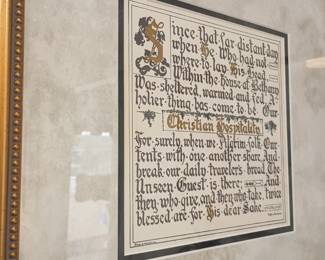 Since that far distant day
when He who had not
where to lay His head,
Within the house of Bethany
Was sheltered, warmed and fed, A
holier thing has come to be Our
Christian Hospitality.
For surely, when we Pilgrim folk Our
tents with one another share, And
break our daily traveler's bread, The
Unseen Guest is there; And
they who give, and they who take, twice
blessed are for His dear Sake.